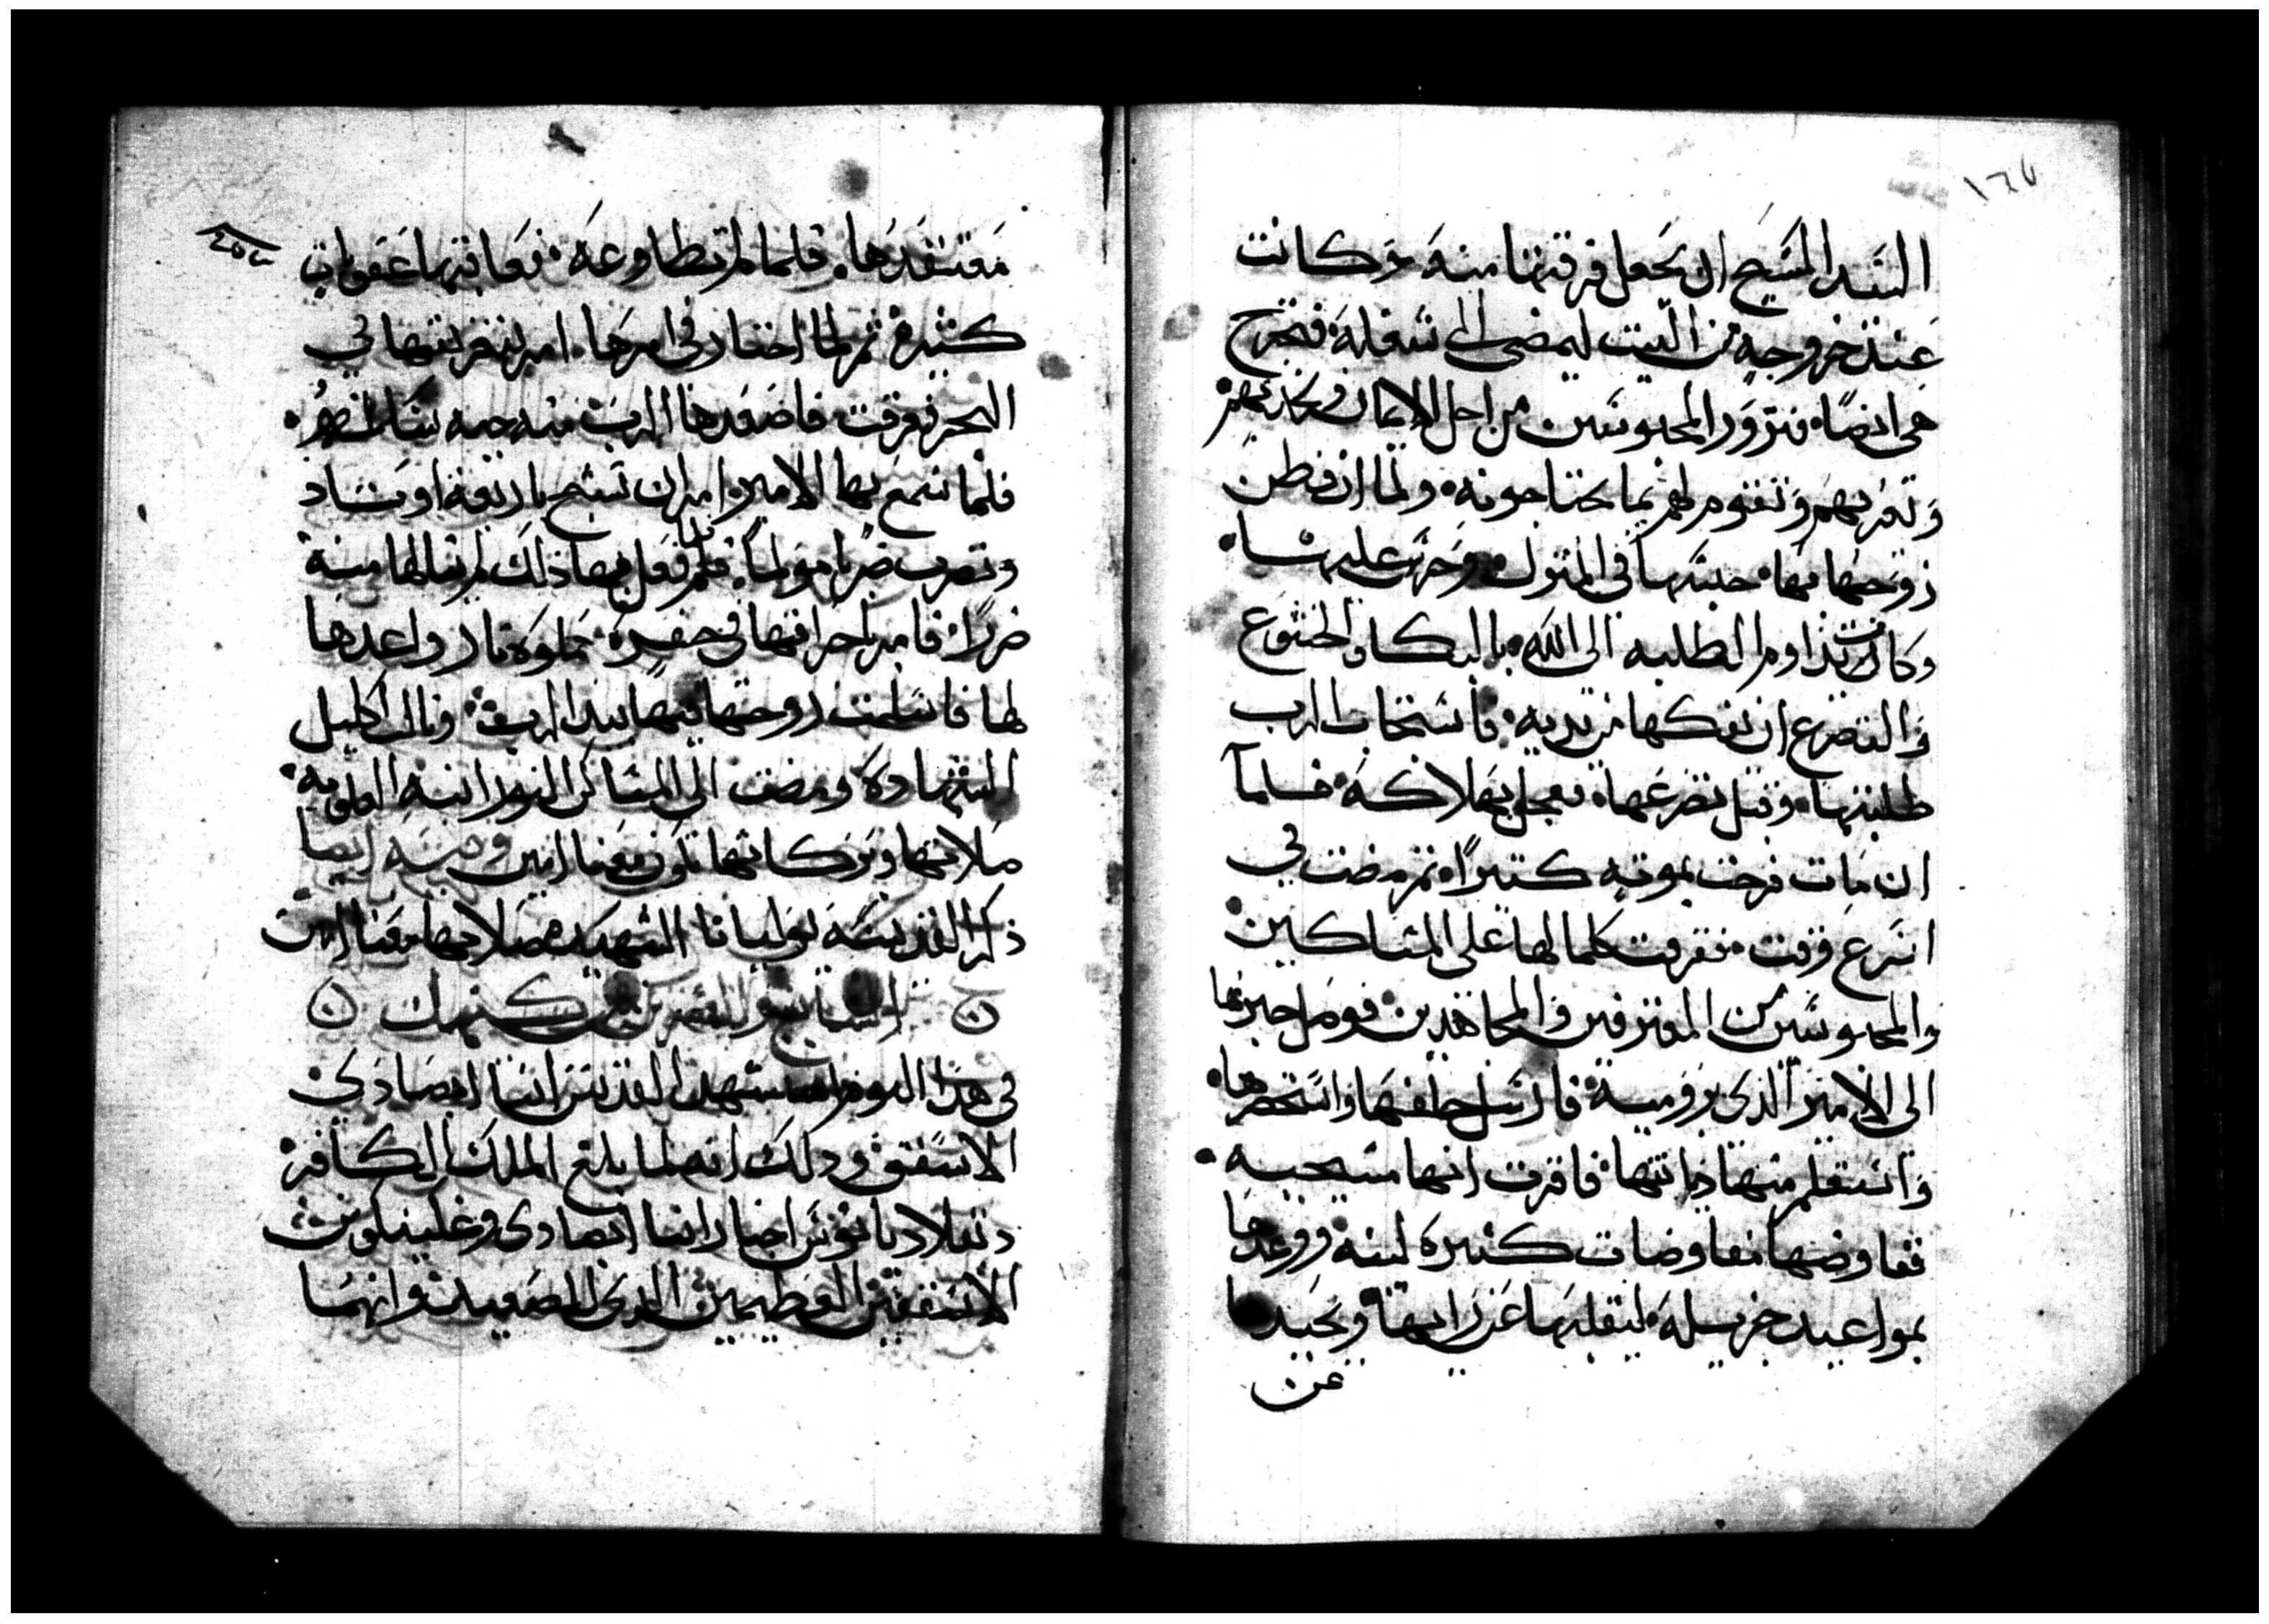 ١٦٧
السيد المسيح ان يجعل فرقتها منه وكانت
عند خروجه من البيت ليمضي الى شغله فتخرج
هي ايضًا فتزور المحبوسين من اجل الايمان وتخدمهم
وتعزيهم وتقوم لهم بما يحتاجونه ولما ان فطن
زوجها بها حبسها في المنزل وحرس عليها
وكانت تداوم الطلبه الى الله بالبكا والخشوع
والتضرع ان يفكها من يديه فاستجاب الرب
طلبتها وقبل تضرعها فعجل بهلاكه فلما
ان مات فرحت بموته كتيرًا ثم مضت في
اسرع وقت ففرقت كلما لها على المساكين
والمحبوسين من المعترفين والمجاهدين فوصل خبرها
الى الامير الذي برومية فارسل خلفها واستحضرها
واستعلم منها ديانتها فاقرت انها مسيحيه
ففاوضها مفاوضات كثيرة لينه ووعدها
بمواعيد جزيله ليقلبها عن رايها ويحيدها
عن
معتقدها فلما لم تطاوعه فعاقبها عقوبات
كثيرة ثم لما احتار في امرها امر بتغريقها في
البحر فغرقت فاصعدها الرب منه حيه
فلما سمع بها الامير امر ان تشبح باربعة اوتاد
وتضرب ضربا مولمًا فلما فعل بها ذلك لم ينالها منه
ضررًا فامر باحراقها في حفيرة مملوة نار واعدها
لها فاسلمت روحها فيها بيد الرب ونالت اكليل
الشهادة ومضت الى المساكن النورانيه العلويه
صلاتها وبركاتها تكون معنا امين وفيه ايضا
ذكر القديسه يوليانا الشهيده صلاتها معنا امين
السابع والعشرين من كيهك
في هذا اليوم استشهد القديس انبا ابصادي
الاسقف وذلك انه لما بلغ الملك الكافر
دقلاديانوس اخبار انبا ابصادي وغلينيكوس
الاسقفين العظيمين الذي الصعيد وانهما